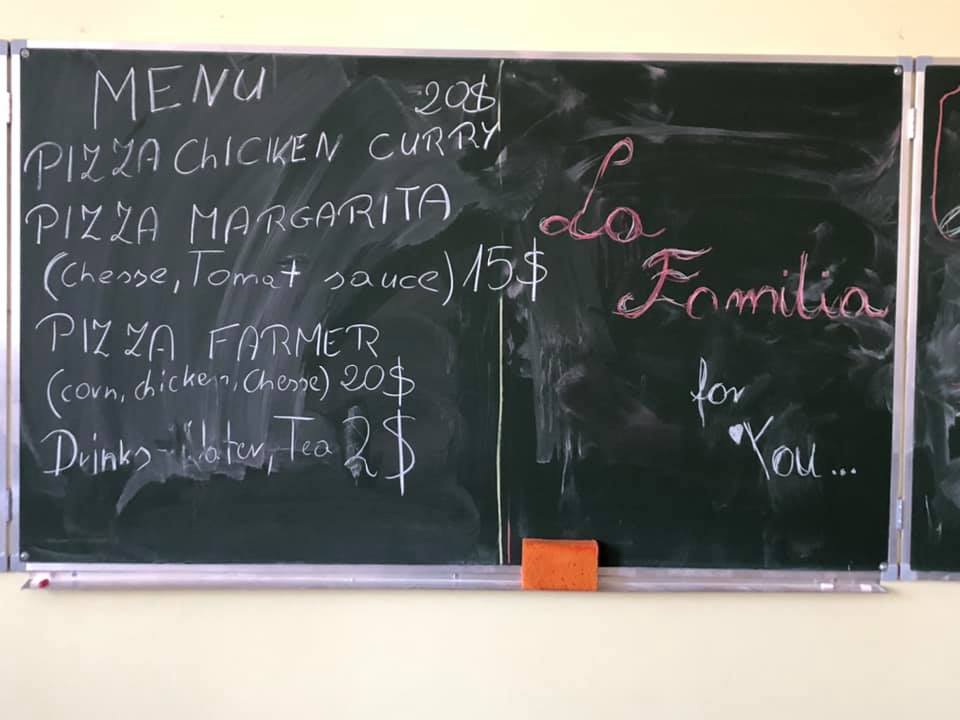 MENU
20$
PIZZA ChICKEN CURRY
PIZZA MARGARITA
(Chesse, Tomat sauce) 15$
PIZZA FARMER
(corn, chicken, Chesse) 20$
Drinks - Water, Tea 2$
La
Familia
for
You...